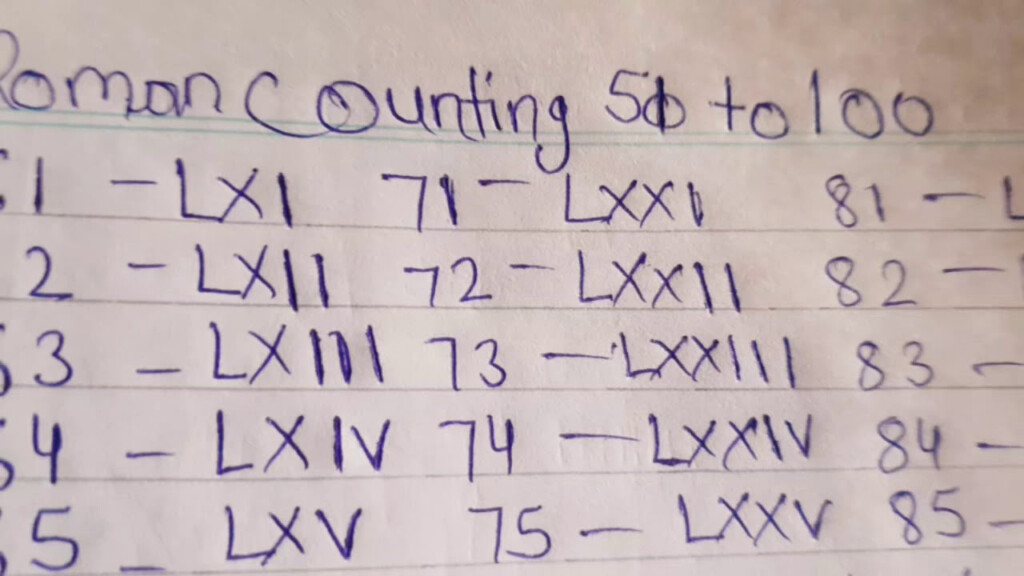 Roman Counting 51 to 100
61 - LXI 71 - LXXI 81 - L
62 - LXII 72 - LXXII 82 -
63 - LXIII 73 - LXXIII 83 -
64 - LXIV 74 - LXXIV 84 -
65 - LXV 75 - LXXV 85 -